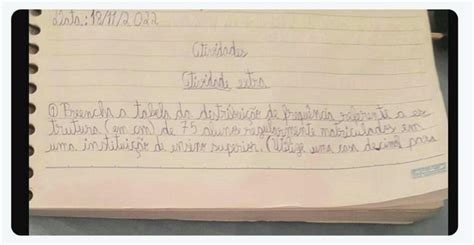 Data: 18/11/2022
Atividades
Atividade extra
① Preencha a tabela da distribuição de frequência referente a es
trutura (em cm) de 75 alunos regularmente matriculados em
uma instituição de ensino superior. (Utilize uma casa decimal para